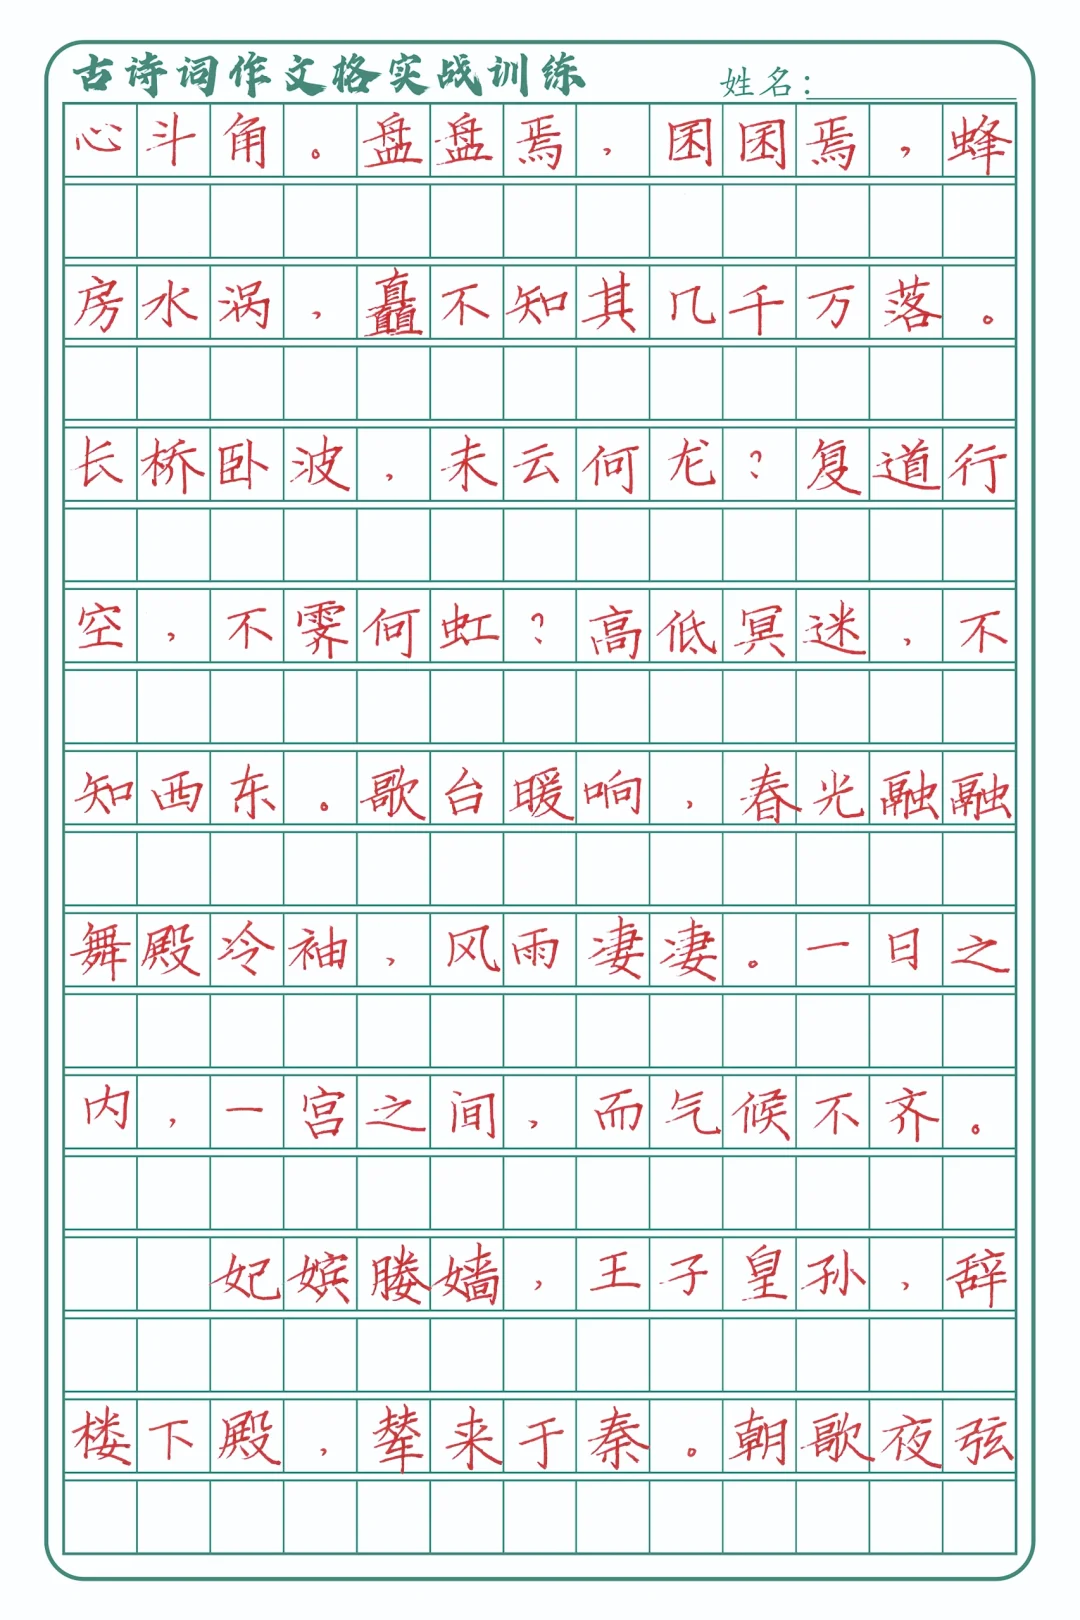 古诗词作文格实战训练
姓名：
心斗角。盘盘焉，囷囷焉，蜂
房水涡，矗不知其几千万落。
长桥卧波，未云何龙？复道行
空，不霁何虹？高低冥迷，不
知西东。歌台暖响，春光融融
舞殿冷袖，风雨凄凄。一日之
内，一宫之间，而气候不齐。
妃嫔媵嫱，王子皇孙，辞
楼下殿，辇来于秦。朝歌夜弦